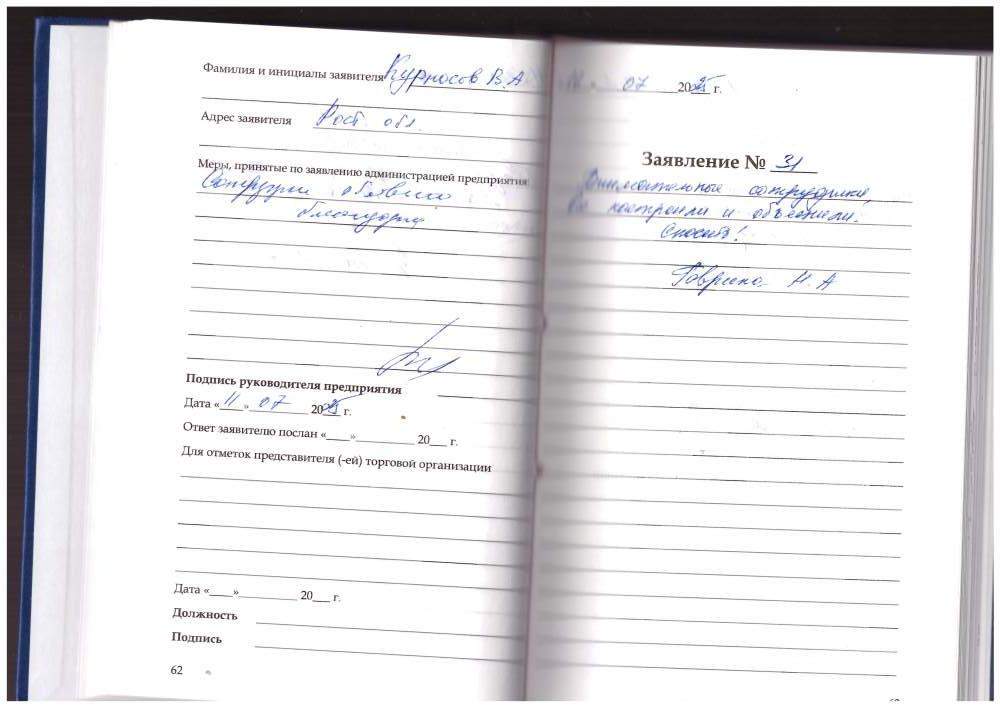 Фамилия и инициалы заявителя Курносов В.А
Адрес заявителя Рост обл.
Меры, принятые по заявлению администрацией предприятия:
объявить
Подпись руководителя предприятия
Дата «11» 07 2025 г.
Ответ заявителю послан «___»_________ 20___ г.
Для отметок представителя (-ей) торговой организации
Дата «___»_________ 20___ г.
Должность
Подпись
62
07 2025 г.
Заявление № 31
Внимательные сотрудники,
все настроили и объяснили.
Спасибо!
Н.А